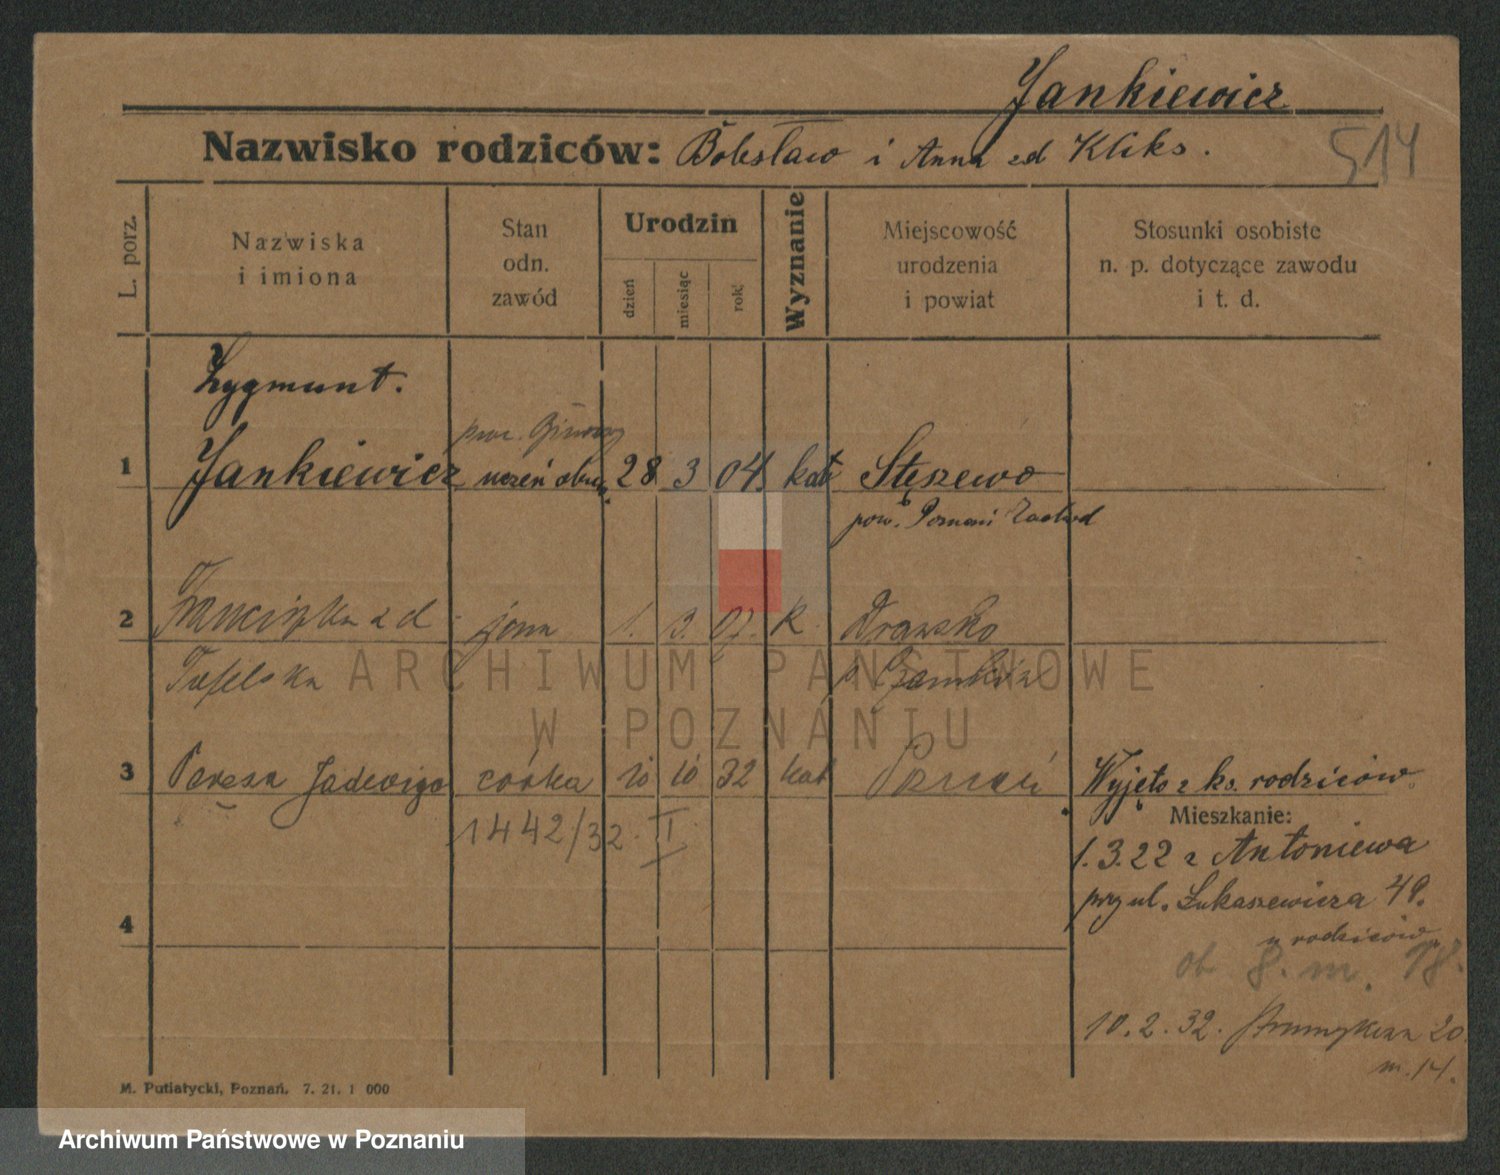 Jankiewicz
Nazwisko rodziców: Bolesław i Anna zd Kliks.
514
L. porz.
Nazwiska
i imiona
Stan
odn.
zawód
Urodzin
dzień
miesiąc
rok
Wyznanie
Miejscowość
urodzenia
i powiat
Stosunki osobiste
n. p. dotyczące zawodu
i t. d.
Zygmunt.
1 Jankiewicz uczeń 28 3 04. kat Stęszewo
pow. Poznań Zachod
2 Franciszka z d. żona 1. 3. 07. K. Drawsko
p. Czarnków
3 Teresa Jadwiga córka 10 10 32 kat Poznań Wyjęto z ks. rodziców
1442/32. II
Mieszkanie:
1.3.22 z Antoniewa
przy ul. Łukaszewicza 49.
u rodziców
ob 8. m. 18.
4
10.2.32. 20
m. 14.
M. Putiatycki, Poznań. 7. 21. 1 000
ARCHIWUM PAŃSTWOWE
W POZNANIU
Archiwum Państwowe w Poznaniu